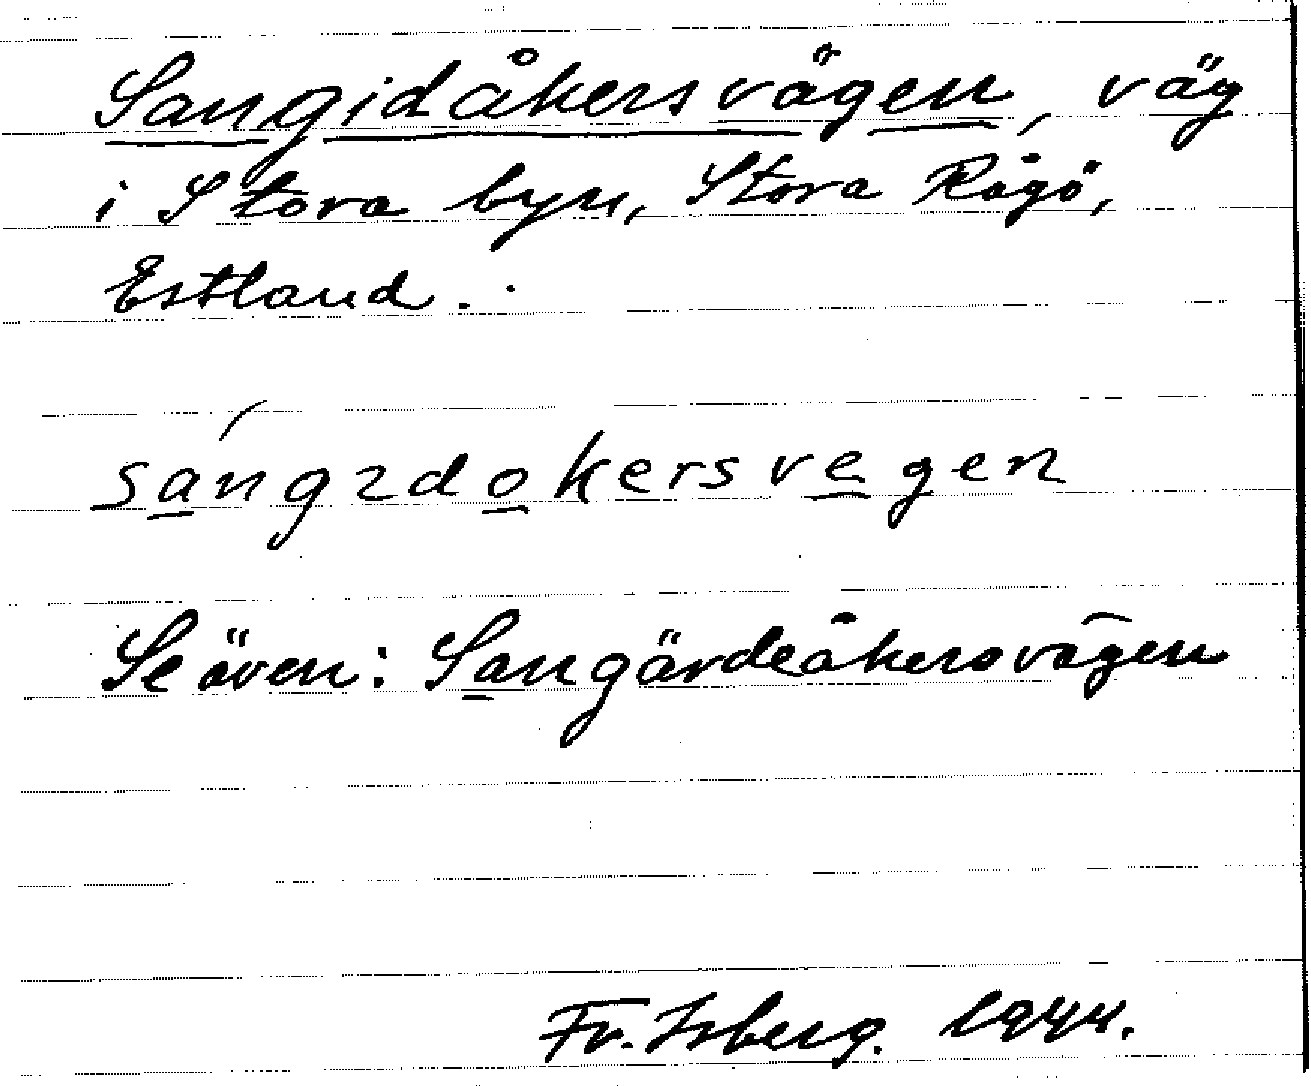 Sangidåkersvägen, väg
i Stora byn, Stora Rågö,
Estland.
sángıdokersvegen
Se även: Sangärdeåkersvägen
Fr. Isberg. 1944.